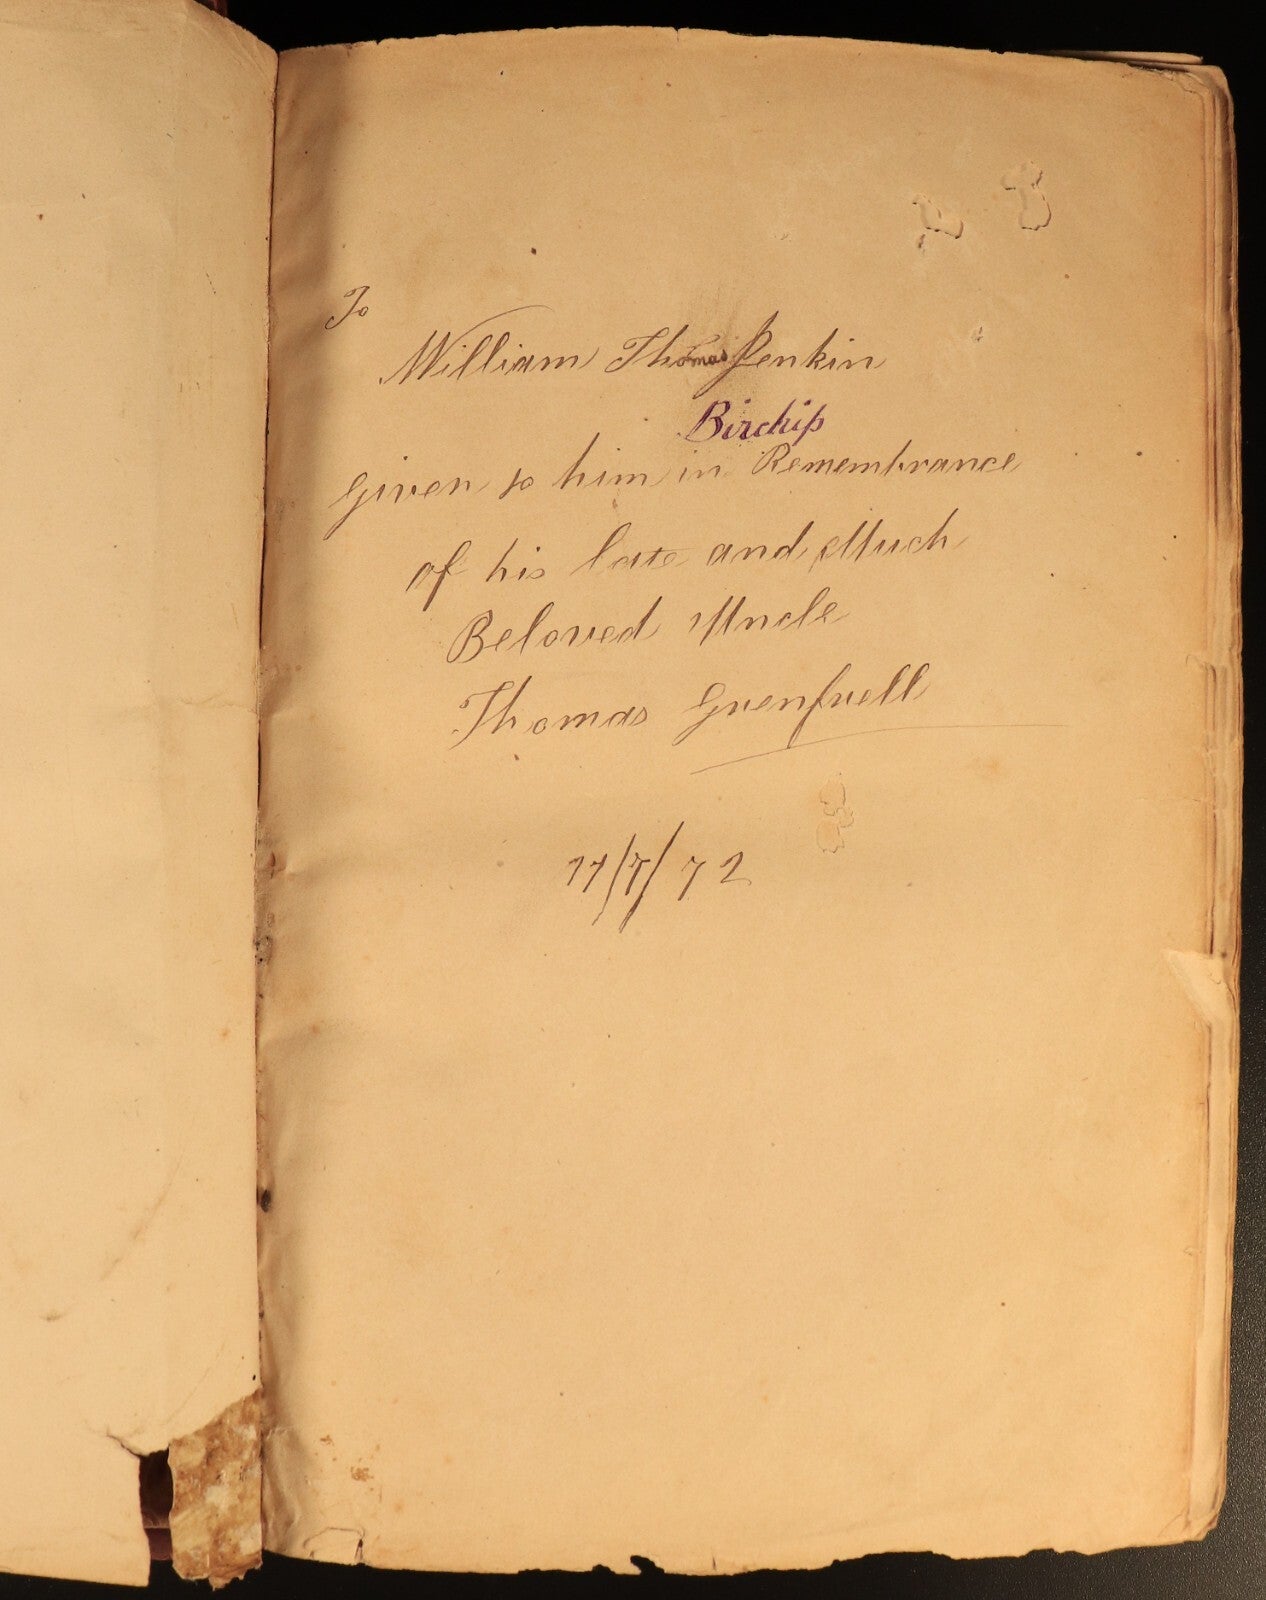 To
William Thomas Jenkin
Birchip
Given to him in Remembrance
of his late and Much
Beloved Uncle
Thomas Grenfrell
17/7/72